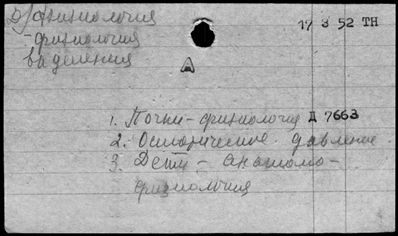 физиология
17 3 52 ТН
-физиология
выделения
А
1. Почки-физиология Д 7663
2. Осмотическое давление.
3. Дети - анатомо-
физиология